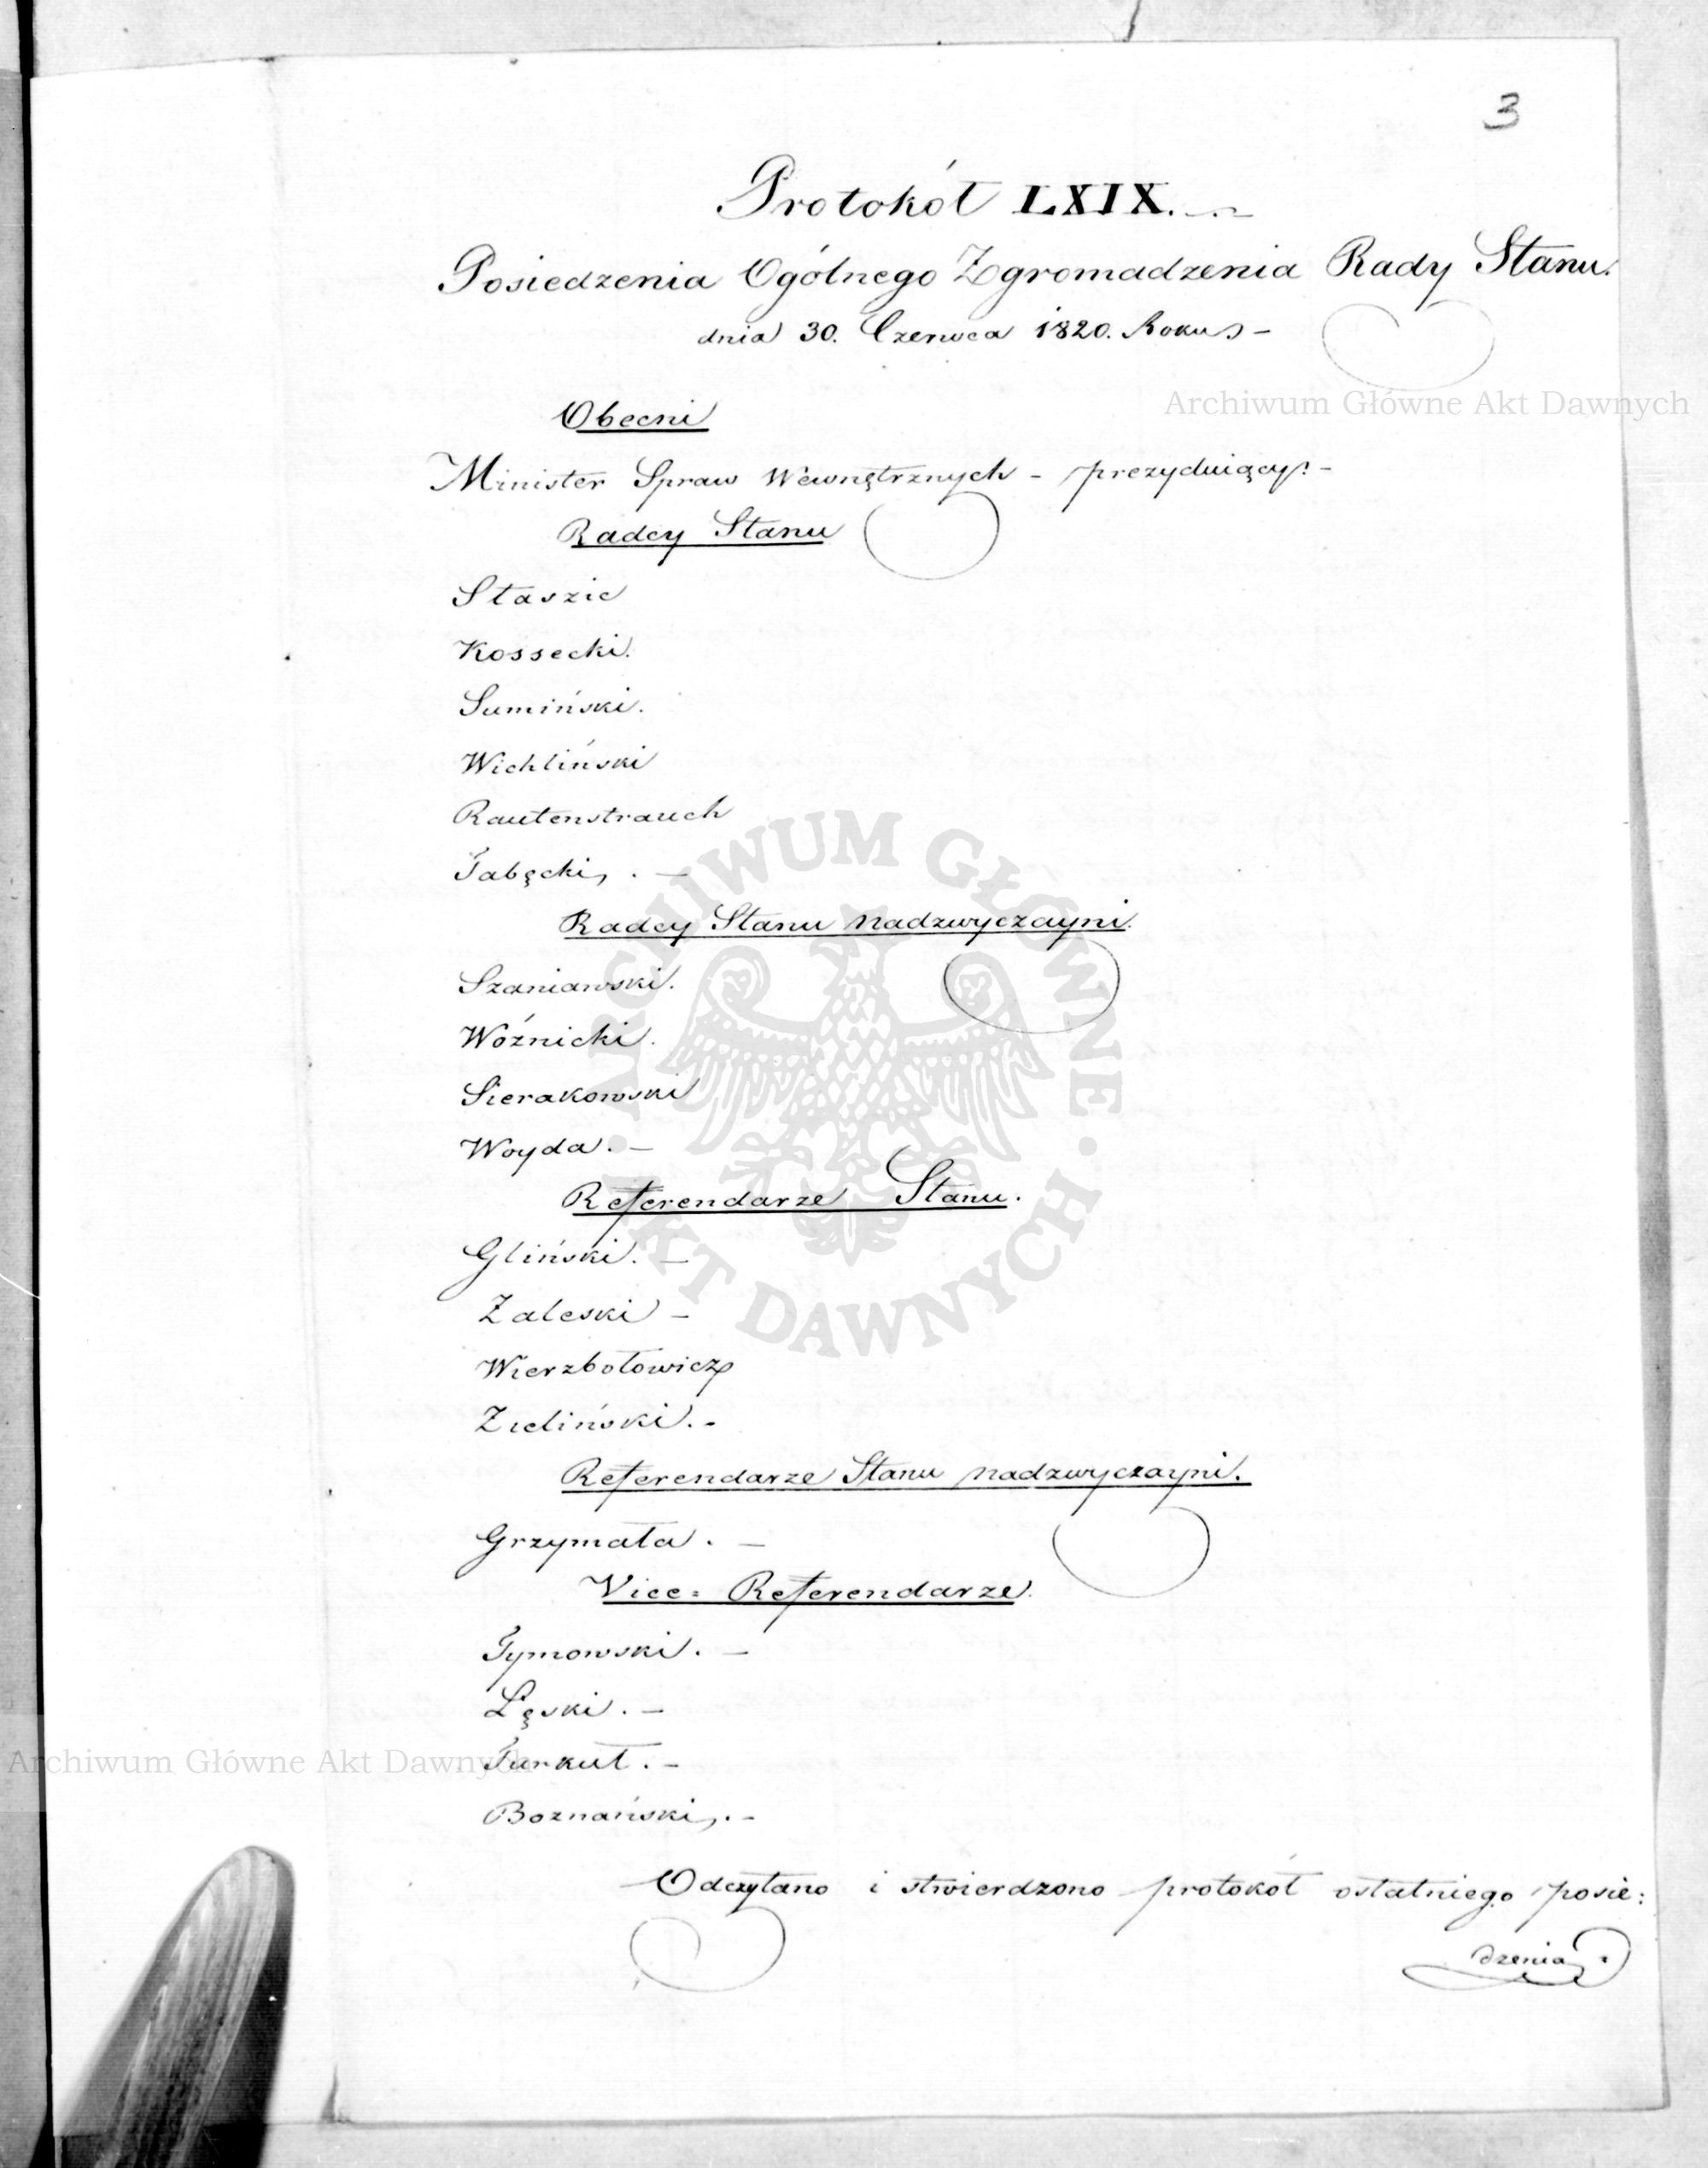 3
Protokół LXIX.
Posiedzenia Ogólnego Zgromadzenia Rady Stanu.
dnia 30. Czerwca 1820. Roku –
Archiwum Główne Akt Dawnych
Obecni
Minister Spraw Wewnętrznych – prezyduiący. –
Radcy Stanu
Staszic
Kossecki.
Sumiński.
Wichliński
Rautenstrauch
Tabęcki. –
Radcy Stanu nadzwyczayni.
Szaniawski.
Woźnicki.
Sierakowski
Woyda. –
Referendarze Stanu.
Gliński. –
Zaleski –
Wierzbołowicz
Zieliński. –
Referendarze Stanu nadzwyczayni.
Grzymała. –
Vice = Referendarze.
Tymowski. –
Łęski. –
Turkuł. –
Boznański. –
Odczytano i stwierdzono protokół ostatniego posie:
dzenia.
ARCHIWUM GŁÓWNE AKT DAWNYCH
Archiwum Główne Akt Dawnych